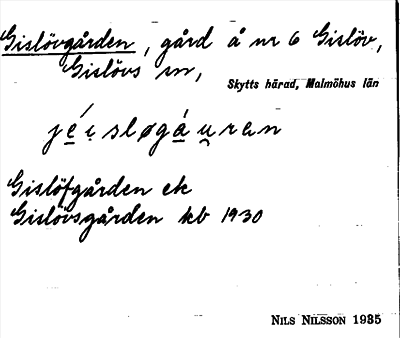 Gislövgården, gård å nr 6 Gislöv,
Gislövs sn,
Skytts härad, Malmöhus län
jéi̯sløgáu̯ran
Gislöfgården ek
Gislövsgården kb 1930
NILS NILSSON 1935